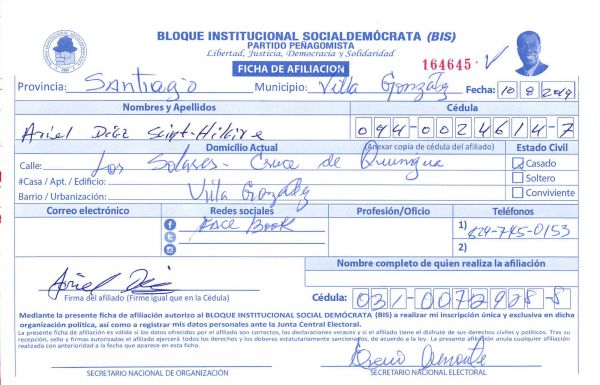 BLOQUE INSTITUCIONAL SOCIALDEMÓCRATA (BIS)
PARTIDO PEÑAGOMISTA
Libertad, Justicia, Democracia y Solidaridad
FICHA DE AFILIACION
164645
Provincia: Santiago Municipio: Villa González Fecha: 10 8 2019
Nombres y Apellidos Cédula
Ariel Díaz Saint-Hilaire 094-0024614-7
Domicilio Actual (Anexar copia de cédula del afiliado) Estado Civil
Calle: Los Solares - Cruce de Quinigua Casado
#Casa / Apt. / Edificio: Soltero
Barrio / Urbanización: Villa González Conviviente
Correo electrónico Redes sociales Profesión/Oficio Teléfonos
Face Book 1) 829-745-0153
2)
Nombre completo de quien realiza la afiliación
Ariel Díaz
Firma del afiliado (Firme igual que en la Cédula) Cédula: 031-0072928-8
Mediante la presente ficha de afiliación autorizo al BLOQUE INSTITUCIONAL SOCIAL DEMÓCRATA (BIS) a realizar mi inscripción única y exclusiva en dicha
organización política, así como a registrar mis datos personales ante la Junta Central Electoral.
La presente ficha de afiliación es válida si los datos ofrecidos por el afiliado son correctos, las declaraciones veraces y si el afiliado tiene el disfrute de sus derechos civiles y políticos. Tras su
recepción, sello y firmas autorizadas el afiliado ejercerá todos los derechos y los deberes estatutariamente sancionados, de acuerdo a la ley. La presente afiliación anula cualquier afiliación
realizada con anterioridad a la fecha que aparece en esta ficha.
SECRETARIO NACIONAL DE ORGANIZACIÓN SECRETARIO NACIONAL ELECTORAL